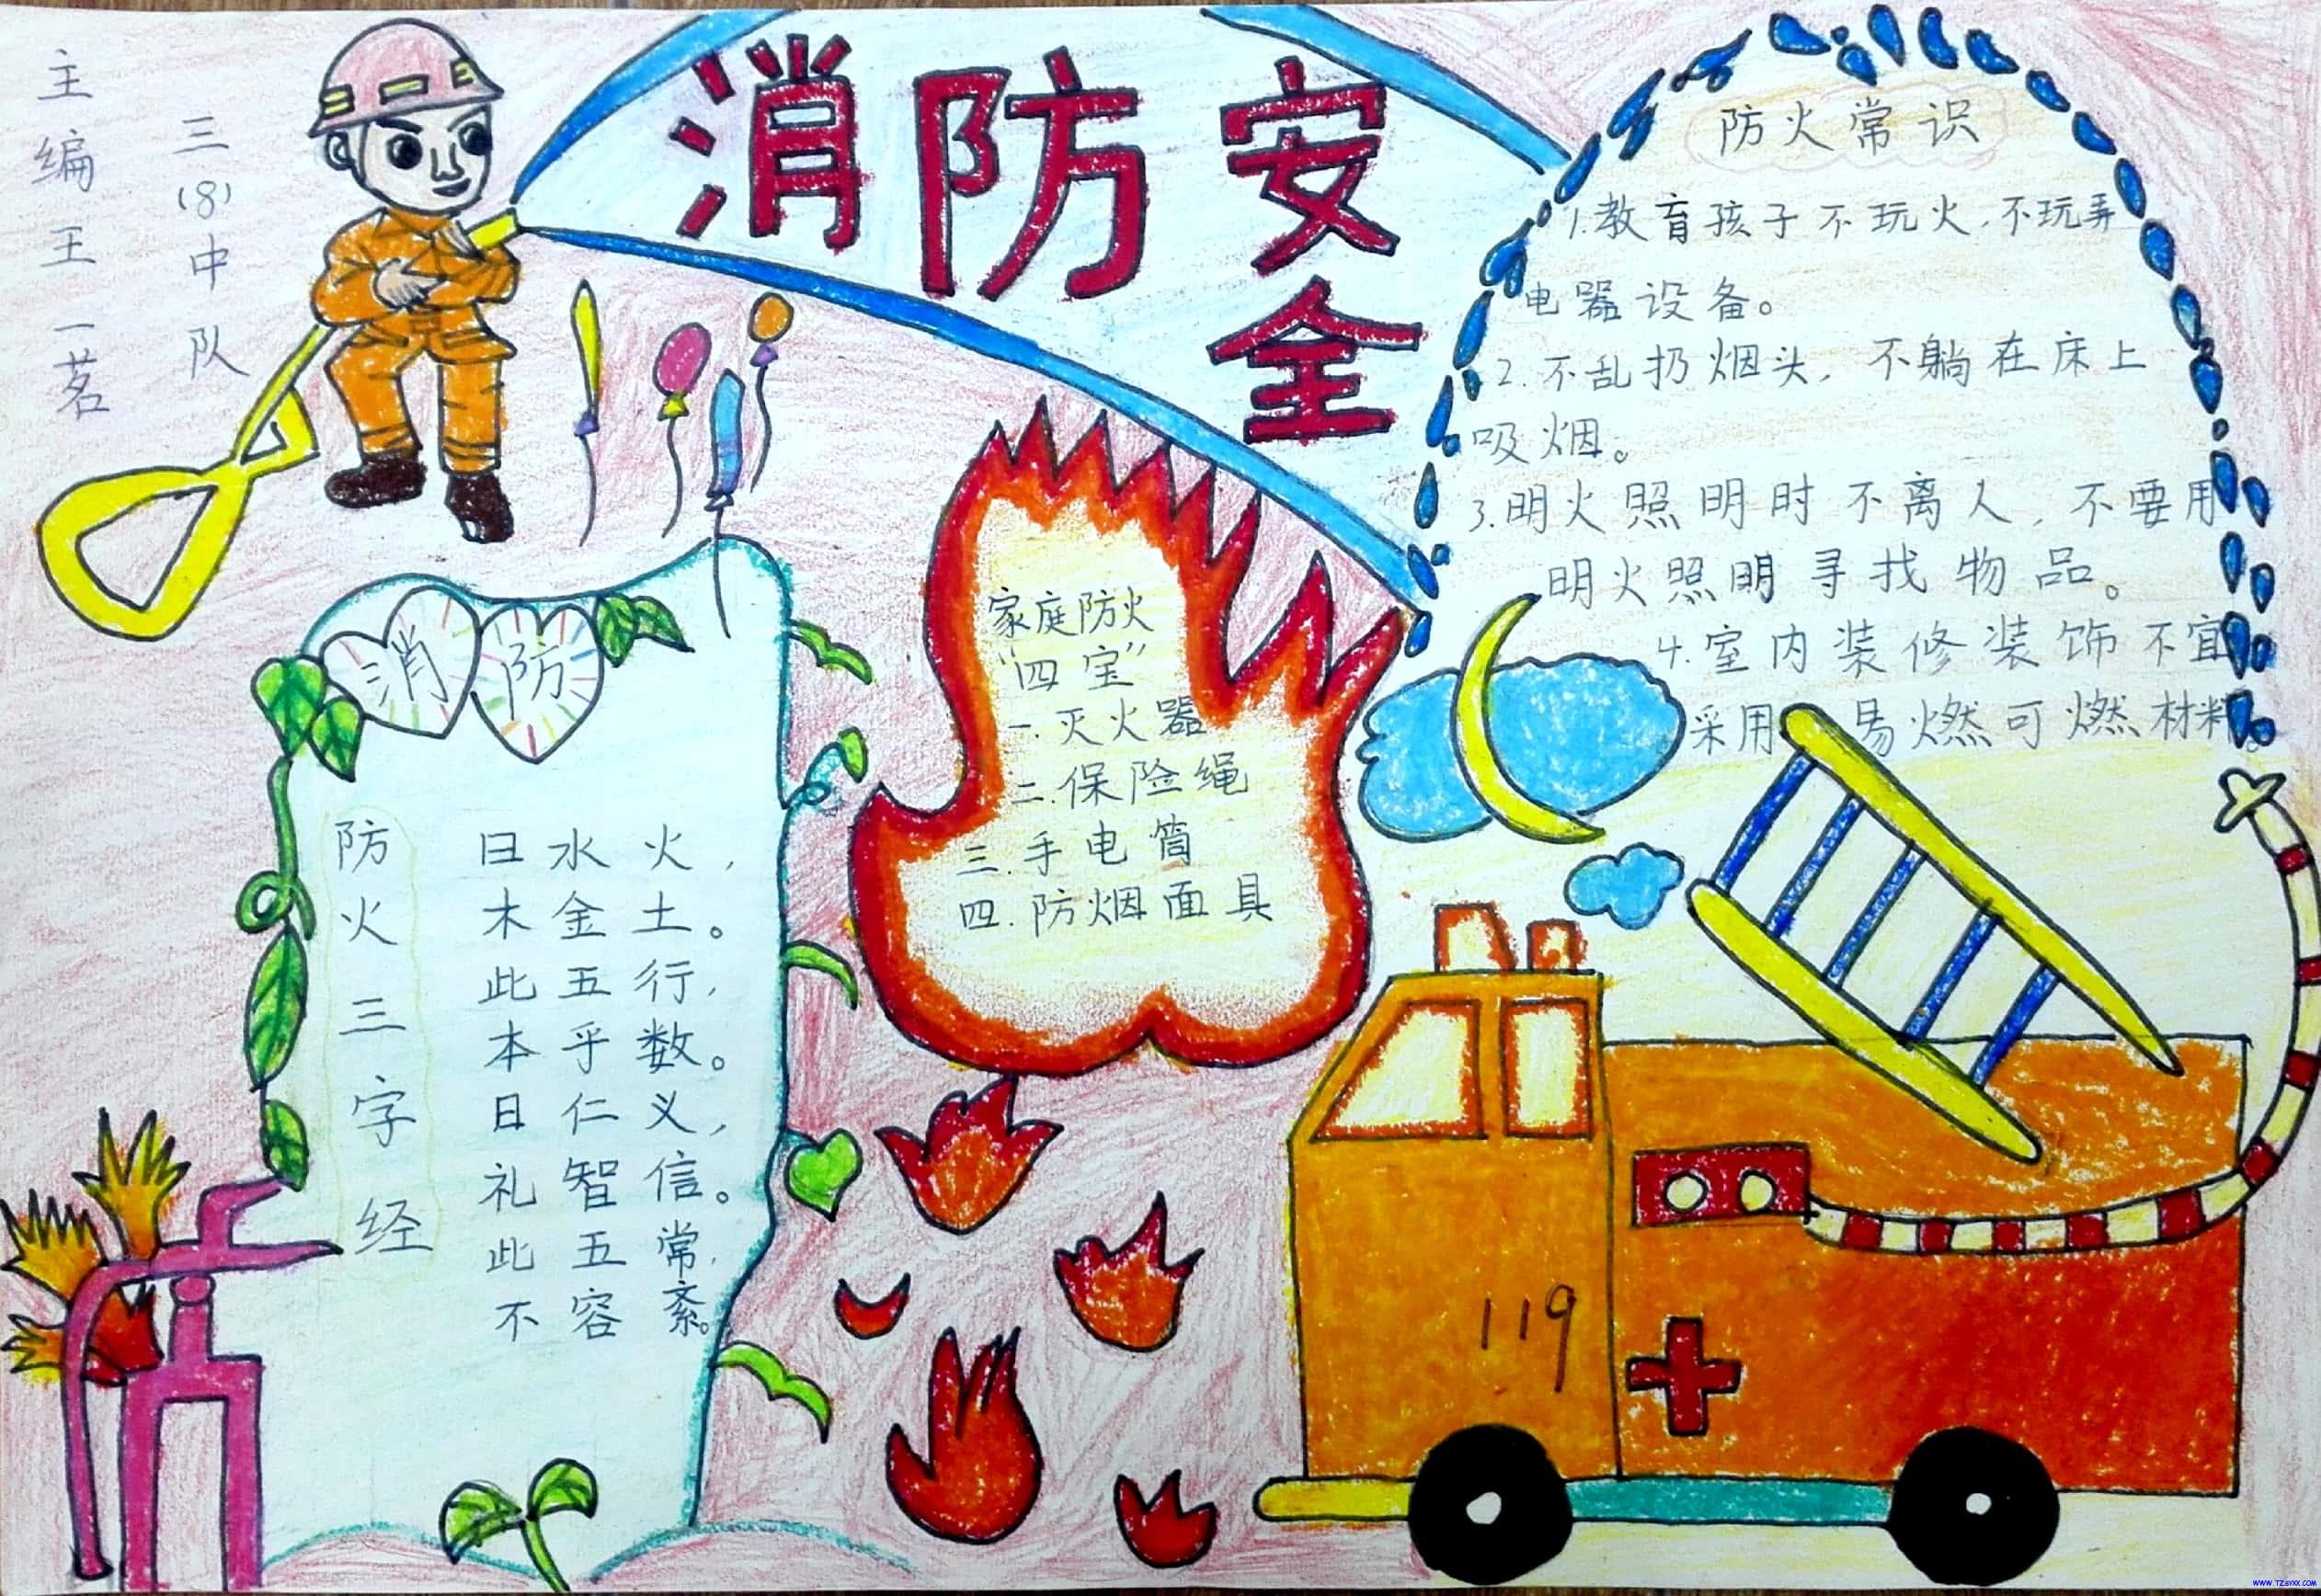 主编王一茗
三(8)中队
消防安全
防火常识
1.教育孩子不玩火,不玩弄
电器设备。
2.不乱扔烟头,不躺在床上
吸烟。
3.明火照明时不离人,不要用
明火照明寻找物品。
4.室内装修装饰不宜
采用易燃可燃材料。
家庭防火
“四宝”
一.灭火器
二.保险绳
三.手电筒
四.防烟面具
消防
防火三字经
曰水火,
木金土。
此五行,
本乎数。
曰仁义,
礼智信。
此五常,
不容紊。
119
WWW.TZSYXX.COM